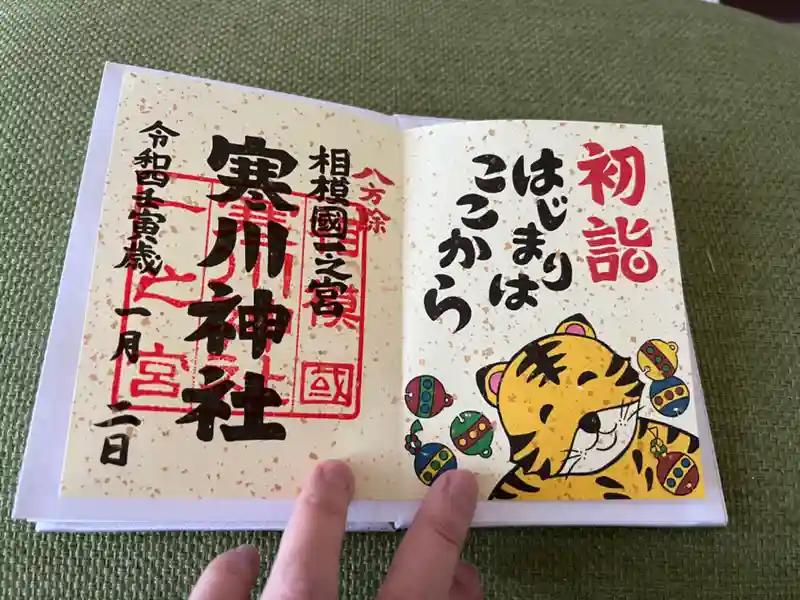 初詣
はじまりは
ここから
八方除
相模國一之宮
寒川神社
令和四壬寅歳
一月
二日
相模國
寒川神社
一之宮